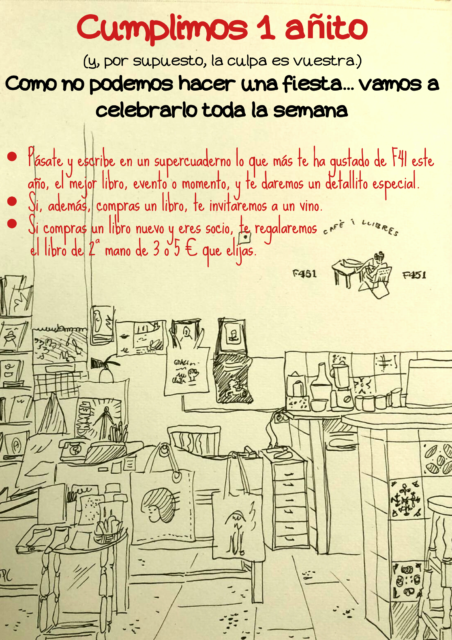 Cumplimos 1 añito
(y, por supuesto, la culpa es vuestra.)
Como no podemos hacer una fiesta... vamos a
celebrarlo toda la semana
• Pásate y escribe en un supercuaderno lo que más te ha gustado de F41 este
año, el mejor libro, evento o momento, y te daremos un detallito especial.
• Si, además, compras un libro, te invitaremos a un vino.
• Si compras un libro nuevo y eres socio, te regalaremos
el libro de 2ª mano de 3 o 5 € que elijas.
CAFÈ I LLIBRES
F451 F451